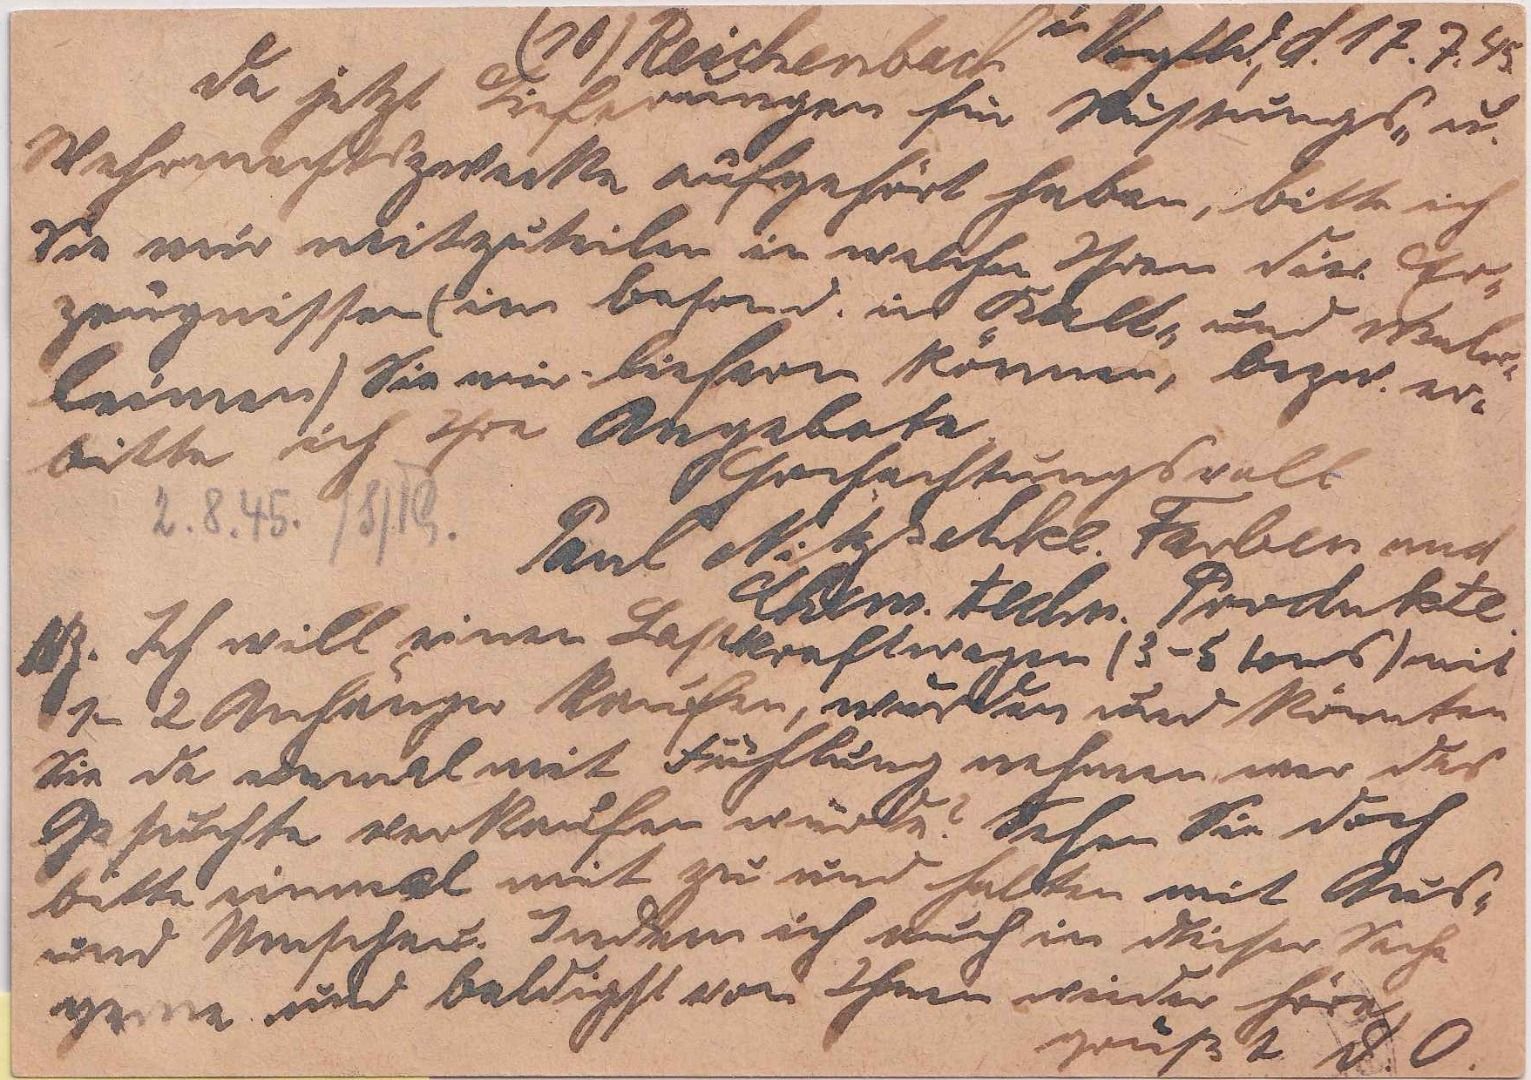 (10) Reichenbach i Vogtld., d. 17.7.45.
Da jetzt Lieferungen für Rüstungs- u.
Wehrmachtszwecke aufgehört haben, bitte ich
Sie mir mitzuteilen in welchen Ihren Er-
zeugnissen (im besond. in Kalt- und Maler-
leimen) Sie mir liefern können, bezw. er-
bitte ich Ihre Angebote.
Hochachtungsvoll
2.8.45.
Paul Nitzschke. Farben und
Chem. techn. Produkte.
NB. Ich will einen Lastkraftwagen (3-5 tons) mit
1-2 Anhänger kaufen, würden und könnten
Sie da einmal mit Fühlung nehmen wer das
Gesuchte verkaufen würde? Sehen Sie doch
bitte einmal mit zu und halten mit Aus-
und Umschau. Indem ich auch in dieser Sache
gerne und baldigst von Ihnen wieder höre,
grüßt d. O.